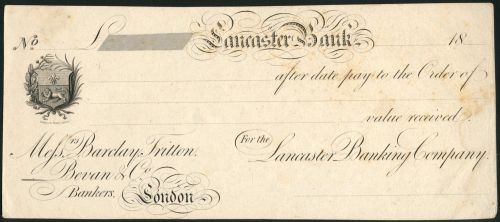 No £ Lancaster Bank 18
after date pay to the Order of
value received.
Messrs Barclay, Tritton, For the Lancaster Banking Company.
Bevan & Co
Bankers, London